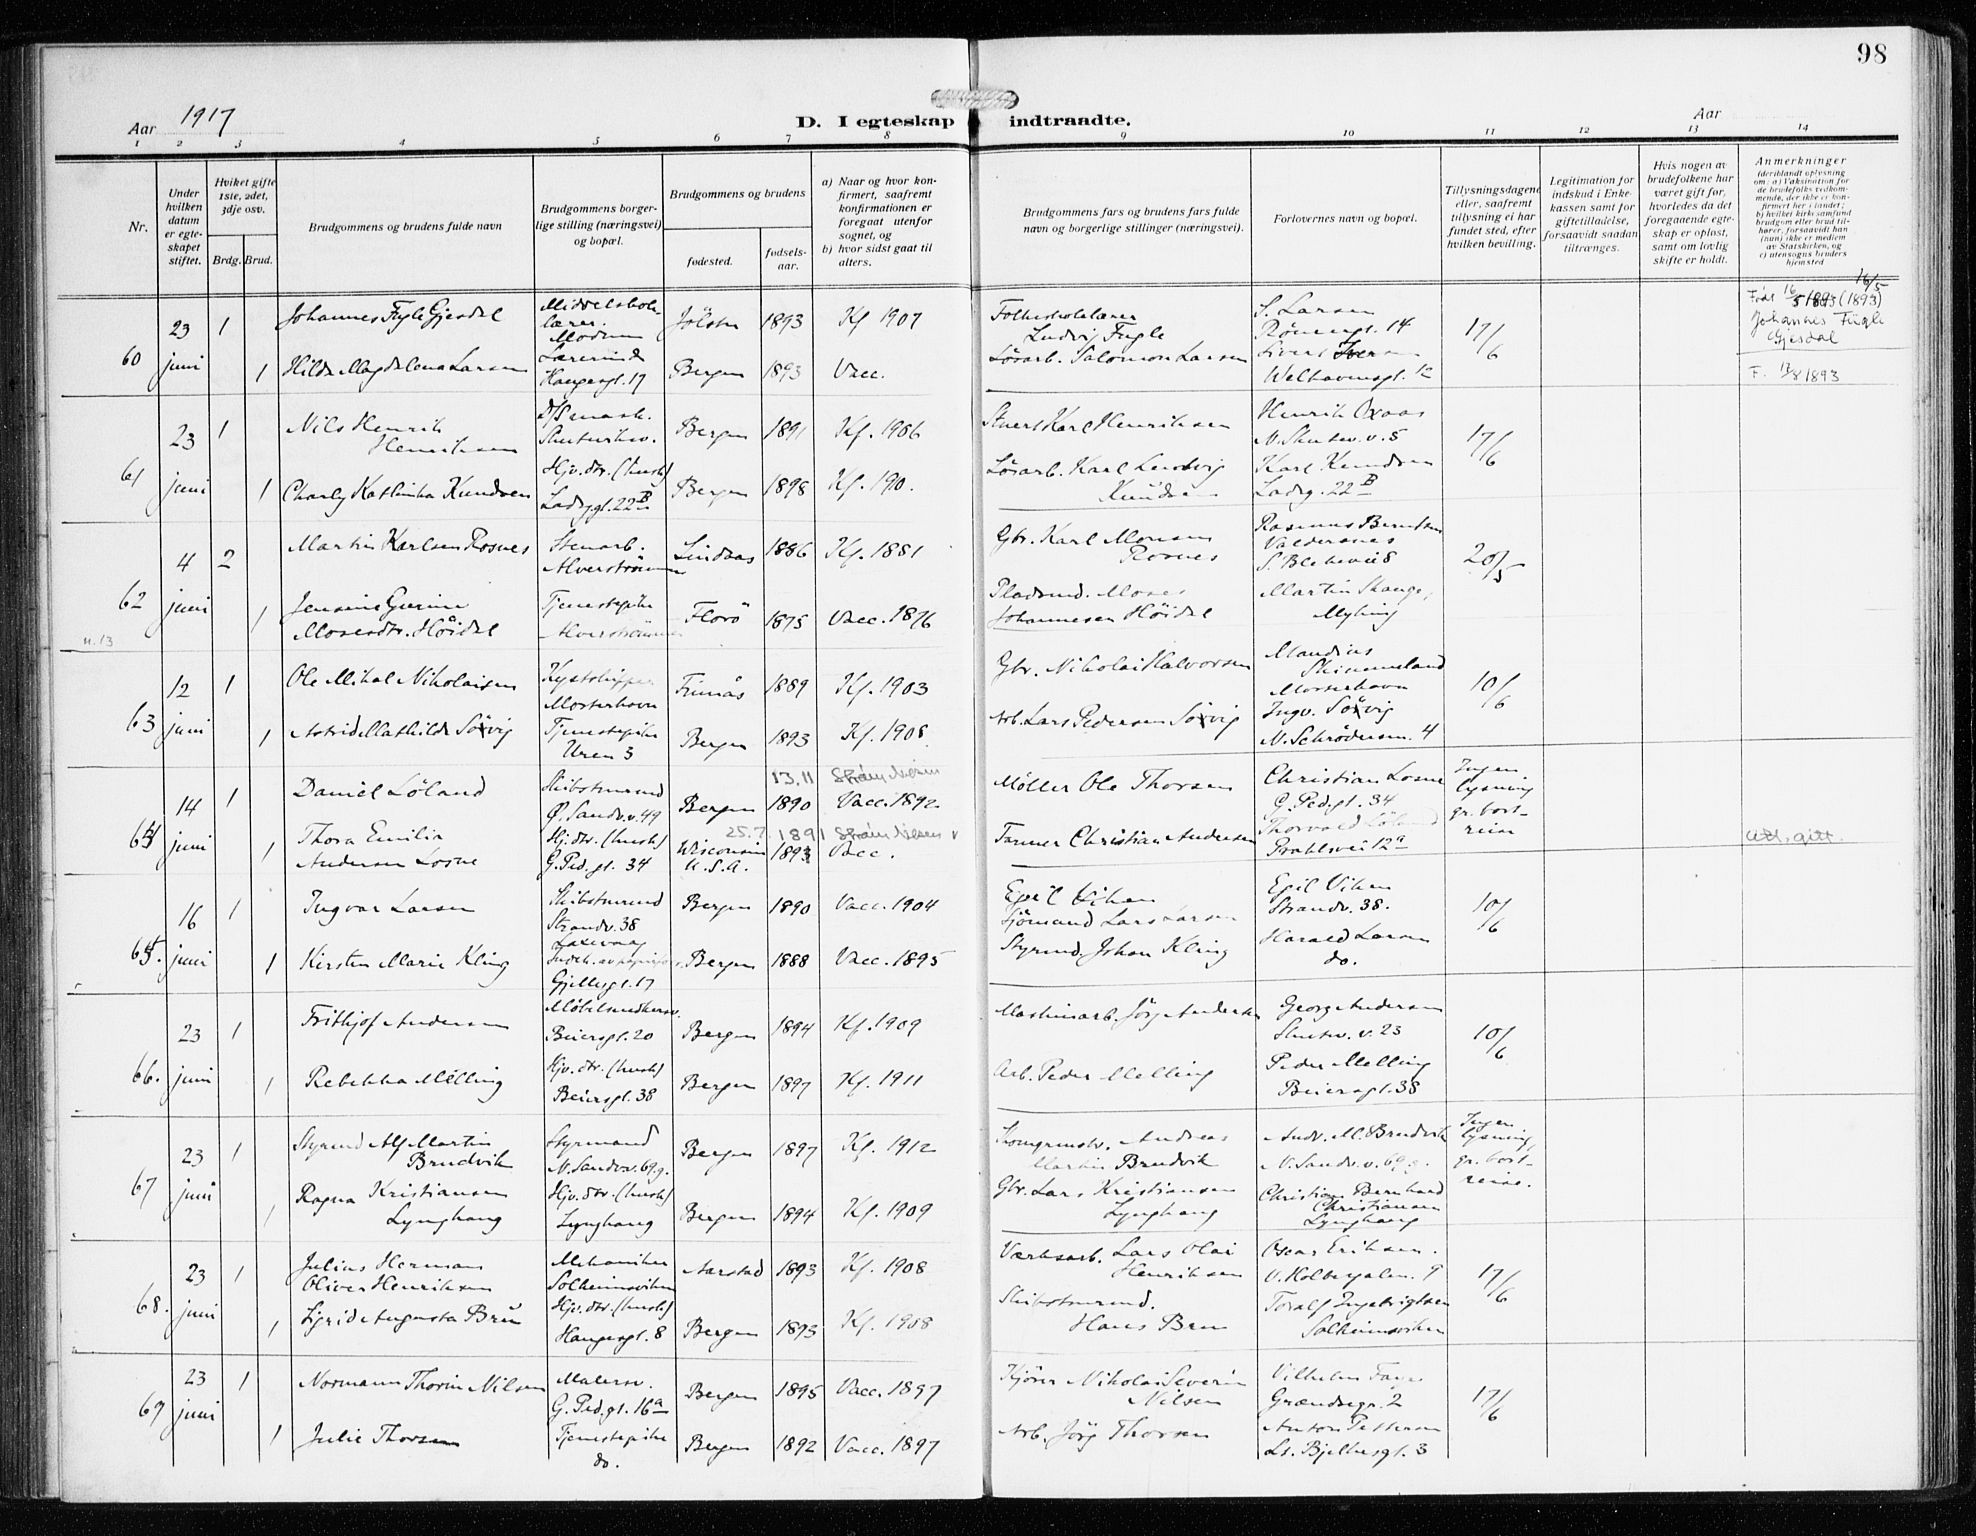 98
Aar 1917
D. I egteskap indtraadte.
Aar
1 2 3 4 5 6 7 8 9 10 11 12 13 14
Nr.
Under hvilken datum er egteskapet stiftet.
Hviket gifte 1ste, 2det, 3dje osv.
Brdg. Brud.
Brudgommens og brudens fulde navn
Brudgommens borgerlige stilling (næringsvei) og bopæl.
Brudgommens og brudens
fødested.
fødselsaar.
a) Naar og hvor konfirmert, saafremt konfirmationen er foregaat utenfor sognet, og
b) hvor sidst gaat til alters.
Brudgommens fars og brudens fars fulde navn og borgerlige stillinger (næringsvei).
Forlovernes navn og bopæl.
Tillysningsdagene eller, saafremt tillysning ei har fundet sted, efter hvilken bevilling.
Legitimation for indskud i Enkekassen samt for giftetilladelse, forsaavidt saadan tiltrænges.
Hvis nogen av brudefolkene har været gift før, hvorledes da det foregaaende egteskap er opløst, samt om lovlig skifte er holdt.
Anmerkninger
(deriblandt oplysning om: a) Vaksination for de brudefolks vedkommende, der ikke er konfirmert her i landet; b) hvilket kirkesamfund brudgom eller brud tilhører, forsaavidt han (hun) ikke er medlem av Statskirken, og c) utensogns bruders hjemsted
60 23 juni 1 Johannes Fugle Gjesdal Middelskolelærer. Modum Jölster 1893 Kf 1907 Folkeskolelærer Ludvig Fugle S. Larsen 14 17/6
Født 16/5 1893 (1893) 16/5
Johannes Fugle Gjesdal
1 Hilda Magdalena Larsen Lærerinde Haugesgt. 17 Bergen 1893 Vacc. Lösarb. Salomon Larsen Sivert Iversen Welhavensgt. F. 17/8 1893
61 23 juni 1 Nils Henrik Henriksen Bergen 1891 Kf. 1906 Stuert Karl Henriksen Henrik N. Skutev. v. 5 17/6
1 Charly Kathinka Knudsen Hjv. dtr. (hush) Ladeg.gt. 22B Bergen 1898 Kf. 1910. Lösarb. Karl Ludvig Knudsen Karl Knudsen Ladeg. 22B
62 4 juni 2 Martin Karlsen Rosnes Stenarb. Alverströmmen Lindaas 1886 Kf. 1881 Gbr. Karl Monsen Rosnes Rasmus Berntsen Valdersnes S. Blekevei 8 20/5
1 Jensine Gurine Mosesdtr. Höidal Tjenestepike Alverströmmen Florö 1875 Vacc. 1876 Pladsmd. Moses Johannesen Höidal Martin Skauge, Myking
n. 13
63 12 juni 1 Ole Mikal Nikolaisen Kystskipper Mosterhavn Finnås 1889 Kf. 1903 Gbr. Nikolai Halvorsen Mandius Skimmeland Mosterhavn 10/6
1 Astrid Mathilde Sörvig Tjenestepike Uren 3 Bergen 1893 Kf. 1908. Arb. Lars Pedersen Sörvig Ingv. Sörvig N. Schrödersm. 4
64 14 juni 1 Daniel Löland Skibstmrmd Ø. Sandv. v. 49 Bergen 13.11 1890 Vacc. 1892 Möller Ole Thorsen Christian Losne G. Ped.gt. 34 Ingen lysning gr. bortreise
1 Thora Emilia Andersen Losne Hj. dtr. (hush) G. Ped. gt. 34 Wisconsin U.S.A. 25.7 1891 1893 Vacc. Farmer Christian Andersen Thorvald Löland Prahlsvei 12a att. gitt.
65. 16 juni 1 Ingvar Larsen Skibstmrmd Strandv. 38 Laksevaag Bergen 1890 Vacc. 1904 Egil Viken Sjömand Lars Larsen Egil Viken Strandv. 38. 10/6
1 Kirsten Marie Kling Gjellesgt. 17 Bergen 1888 Vacc. 1895 Styrmd. Johan Kling Harald Larsen do.
66. 23 juni 1 Frithjof Andersen Möbelsnedkersv. Beiersgt. 20 Bergen 1894 Kf. 1909 Maskinarb. Jörg. Andersen Georg Andersen Skutev. v. 23 10/6
1 Rebekka Melling Hjv. dtr. (hush) Beiersgt. 38 Bergen 1897 Kf. 1911 Arb. Peder Melling Peder Melling Beiersgt. 38
67 23 juni 1 Styrmd Alf Martin Brudvik Styrmand N. Sandv. v. 69 g. Bergen 1897 Kf. 1912 Andreas Martin Brudvik Andr. M. Brudvik N. Sandv. v. 69 g. Ingen lysning, gr. bortreise.
1 Ragna Kristiansen Lynghaug Hjv. dtr. (hush) Lynghaug Bergen 1894 Kf. 1909 Gbr. Lars Kristiansen Lynghaug Christian Bernhard Christiansen Lynghaug
68. 23 juni 1 Julius Herman Oliver Henriksen Mekaniker Solheimsviken Aarstad 1893 Kf. 1908 Værksarb. Lars Olai Henriksen Oscar Eriksen. V. Holbergalm. 9 17/6
1 Sigrid Augusta Brun Hjv. dtr. (hush) Haugesgt. 8 Bergen 1893 Kf. 1908 Skibstmrmd. Hans Brun Toralf Ingebrigtsen Solheimsviken
69 23 juni 1 Normann Thorin Nilsen Malersv. G. Ped.gt. 16a Bergen 1895 Vacc. 1897 Kjörer Nikolai Severin Nilsen Vilhelm 2 17/6
1 Julie Thorsen Tjenestepike do. Bergen 1892 Vacc. 1897 Arb. Jörg. Thorsen Anton Pettersen Ls. Bjelkesgt. 3